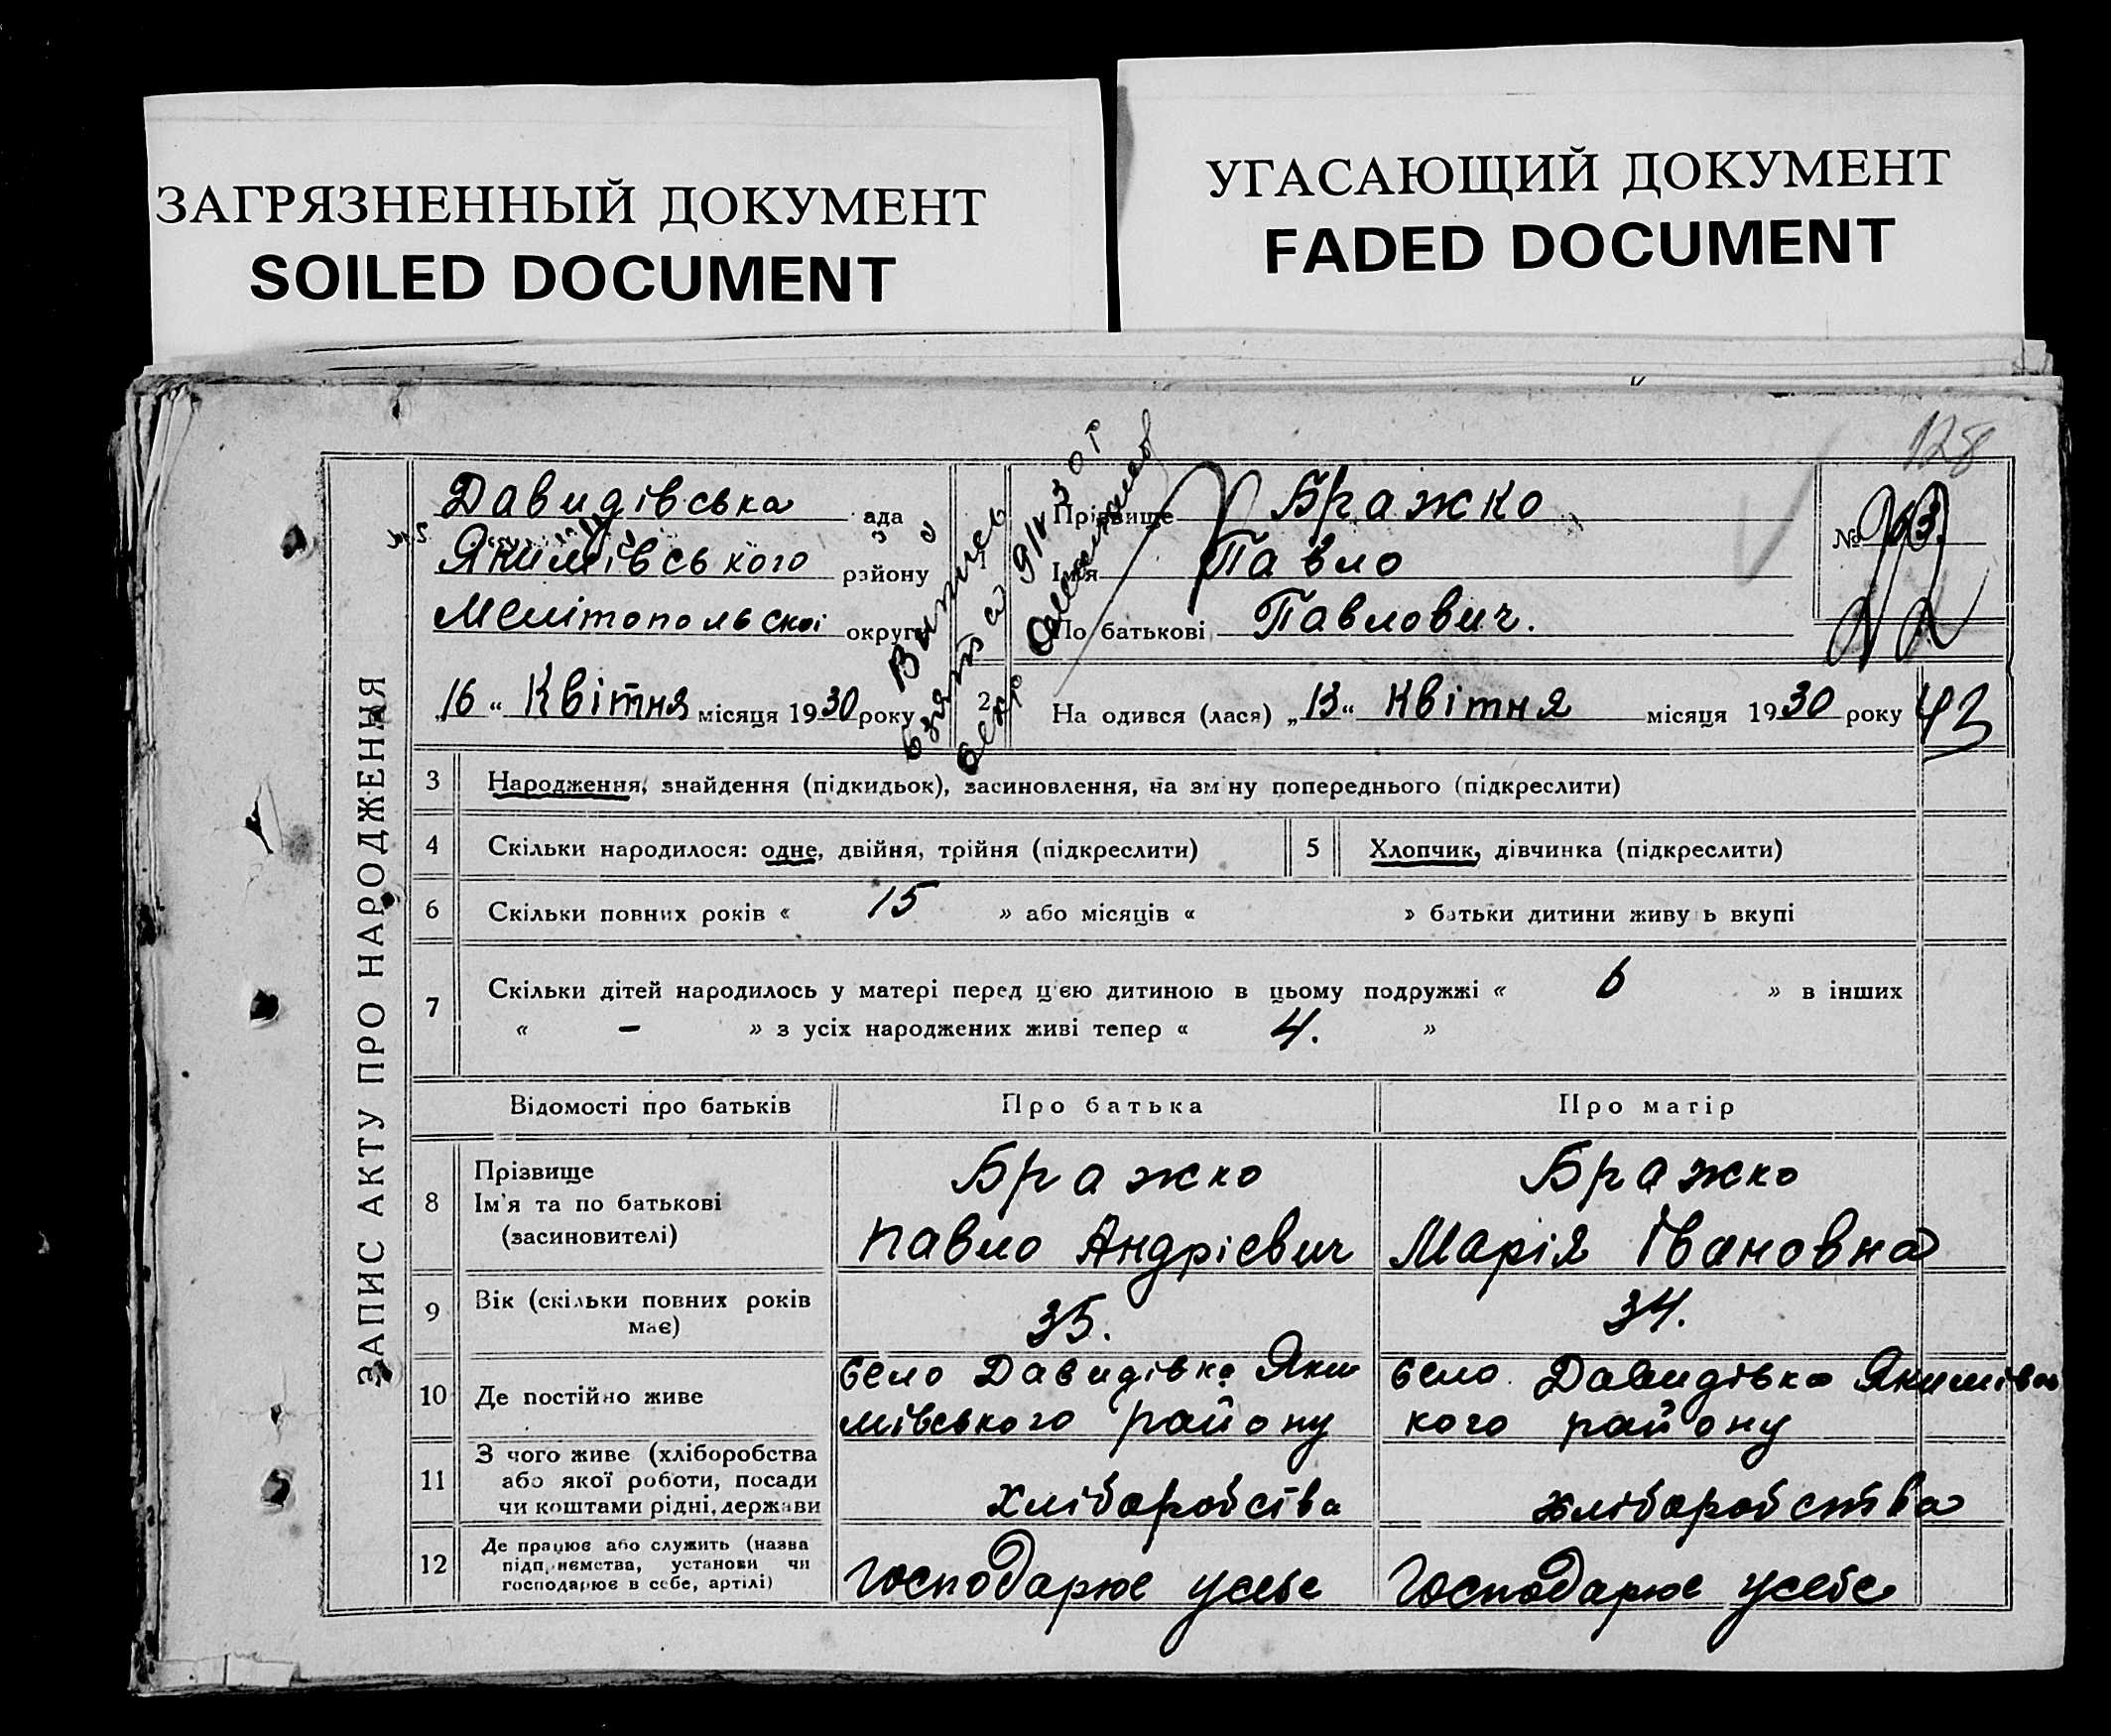 ЗАГРЯЗНЕННЫЙ ДОКУМЕНТ
SOILED DOCUMENT
УГАСАЮЩИЙ ДОКУМЕНТ
FADED DOCUMENT
128
ЗАПИС АКТУ ПРО НАРОДЖЕННЯ
Давидівська ада
Якимівського району
Мелітопольскої округи
„16“ Квітня місяця 1930 року
Витяг
взято
Прізвище Бражко
Ім'я Павло
По батькові Павлович.
№
22
43
2 На одився (лася) „13“ Квітня місяця 1930 року
3 Народження, знайдення (підкидьок), засиновлення, на зміну попереднього (підкреслити)
4 Скільки народилося: одне, двійня, трійня (підкреслити)
5 Хлопчик, дівчинка (підкреслити)
6 Скільки повних років « 15 » або місяців « » батьки дитини живу ь вкупі
7 Скільки дітей народилось у матері перед цією дитиною в цьому подружжі « 6 » в інших
« – » з усіх народжених живі тепер « 4. »
Відомості про батьків Про батька Про матір
8 Прізвище
Ім'я та по батькові
(засиновителі)
Бражко
Павло Андрієвич
Бражко
Марія Івановна
9 Вік (скільки повних років
має)
35.
34.
10 Де постійно живе
село Давидівка Яки
мівського району
село Давидівка Якимівсь
кого району
11 З чого живе (хліборобства
або якої роботи, посади
чи коштами рідні, держави
хліборобства
хліборобства
12 Де працює або служить (назва
підприємства, установи чи
господарює в себе, артілі)
Господарює усебе
Господарює усебе